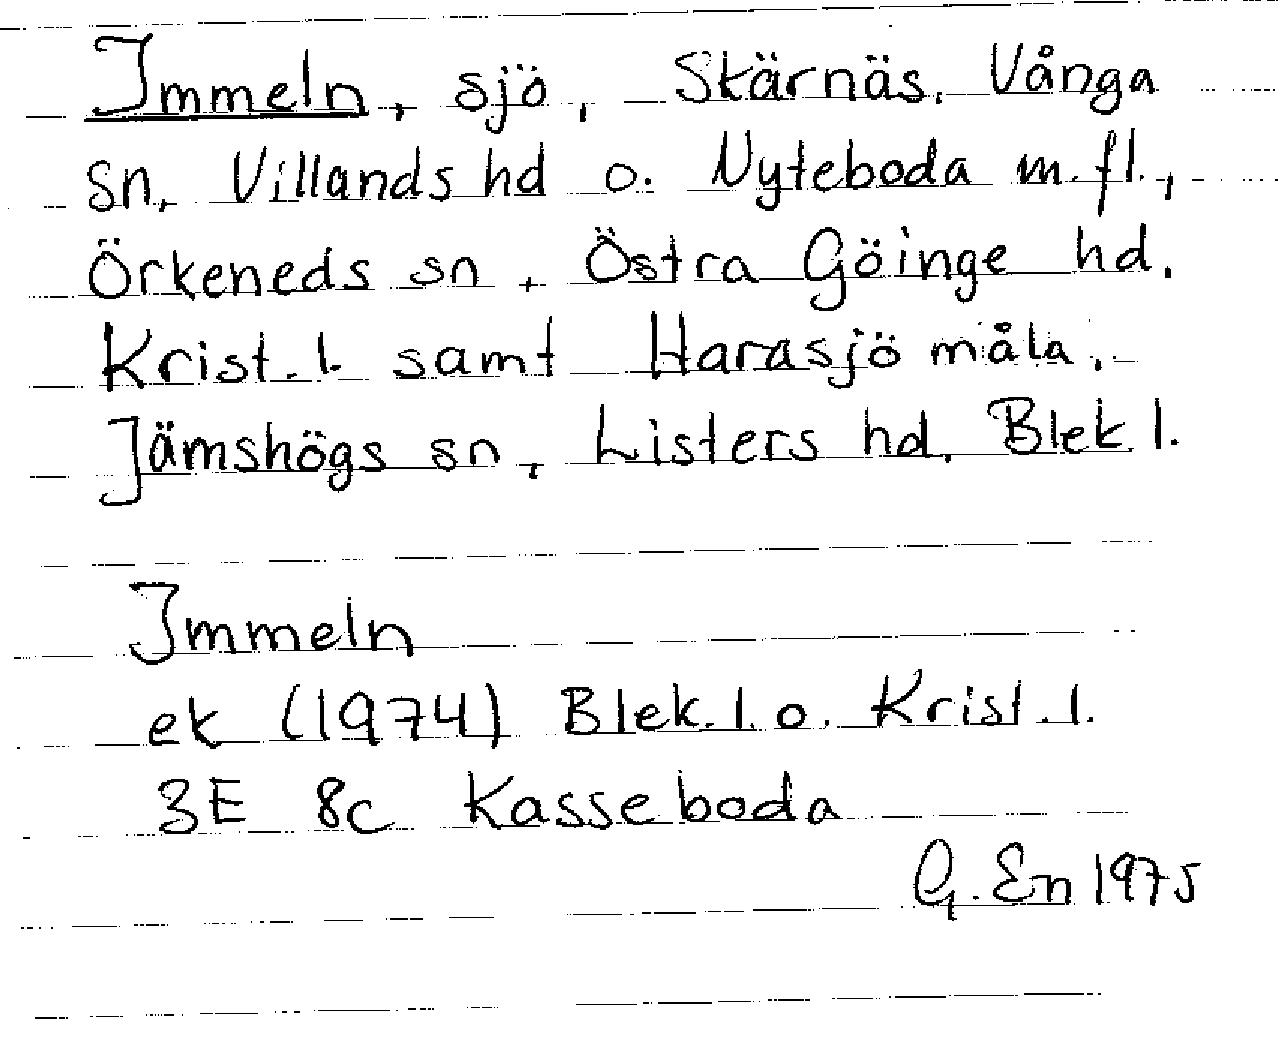 Immeln, sjö, Skärnäs, Vånga
sn, Villands hd o. Nyteboda m.fl.,
Örkeneds sn, Östra Göinge hd.
Krist. l. samt Harasjömåla,
Jämshögs sn, Listers hd, Blek l.
Immeln
ek (1974) Blek. l. o. Krist. l.
3E 8c Kasseboda
G. En 1975